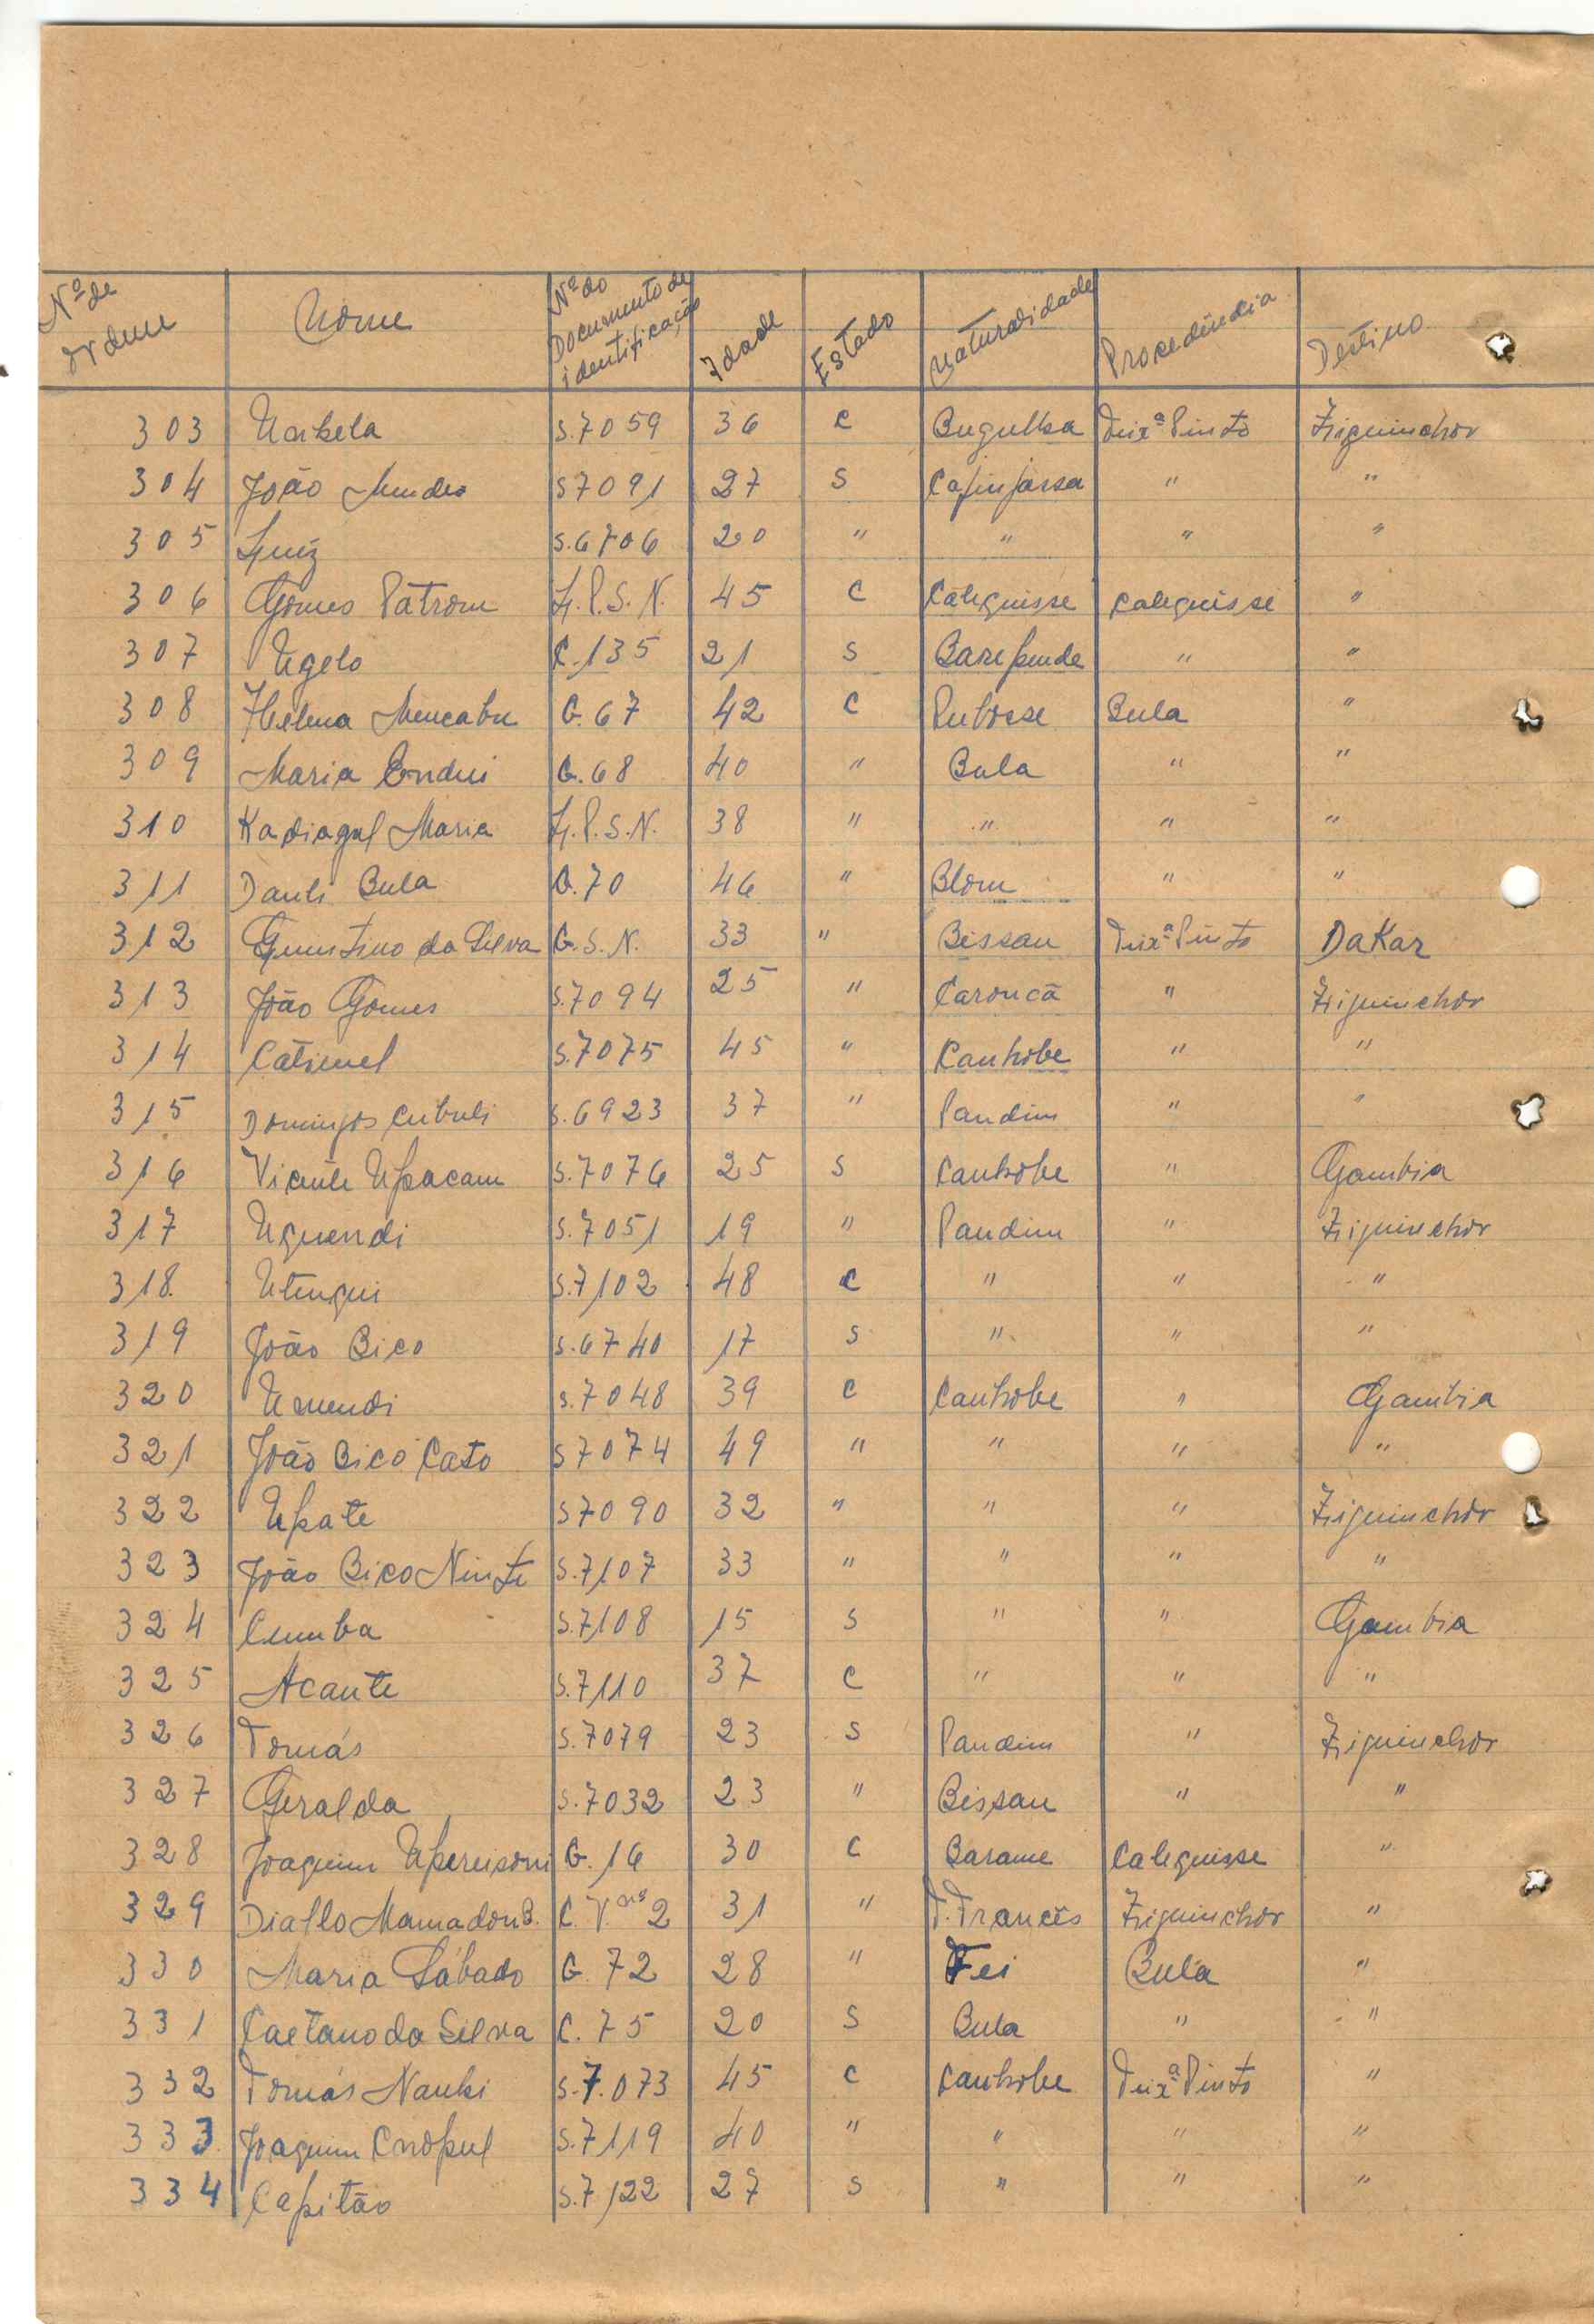 Nº de ordem Nome Nº do Documento de identificação Idade Estado Naturalidade Procedência Destino
303 Uakela S.7059 36 C Bugulha Teixª Pinto Ziguinchor
304 João Mendes S7091 27 S Cajinjassa " "
305 Luiz S.6706 20 " " " "
306 Gomes Patrom L.P.S.N. 45 C Calequisse Calequisse "
307 Ugelo C.135 21 S Barepende " "
308 Helena Mencabu G.67 42 C Bula "
309 Maria Endui G.68 40 " Bula " "
310 Kadiagal Maria L.P.S.N. 38 " " " "
311 Bula G.70 46 " Blom " "
312 da Silva G.S.N. 33 " Bissau Teixª Pinto Dakar
313 João Gomes S.7094 25 " Caroncã " Ziguinchor
314 Catimel S.7075 45 " Canhobe " "
315 Domingos Cubuli S.6923 37 " Pandim " "
316 Vicente Upacam S.7076 25 S Canhobe " Gambia
317 Uguendi S.7051 19 " Pandim " Ziguinchor
318 Utengui S.7102 48 C " " "
319 João Bico S.6740 17 S " " "
320 S.7048 39 C Canhobe " Gambia
321 João Bico Cato S7074 49 " " " "
322 Upate S7090 32 " " " Ziguinchor
323 João Bico Ninte S.7107 33 " " " "
324 Cumba S.7108 15 S " " Gambia
325 Acante S.7110 37 C " " "
326 Tomás S.7079 23 S Pandim " Ziguinchor
327 Geralda S.7032 23 " Bissau " "
328 Joaquim G.16 30 C Barame Calequisse "
329 Diallo Mamadou B. C.V. nº 2 31 " T. Francês Ziguinchor "
330 Maria Sábado G.72 28 " Fei Bula "
331 Caetano da Silva C.75 20 S Bula " "
332 Tomás Nanki S.7.073 45 C Canhobe Teixª Pinto "
333 Joaquim Cnopul S.7119 40 " " " "
334 Capitão S.7122 27 S " " "